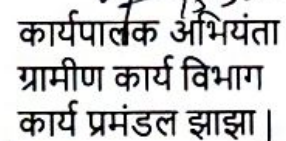 कार्यपालक अभियंता
ग्रामीण कार्य विभाग
कार्य प्रमंडल झाझा |